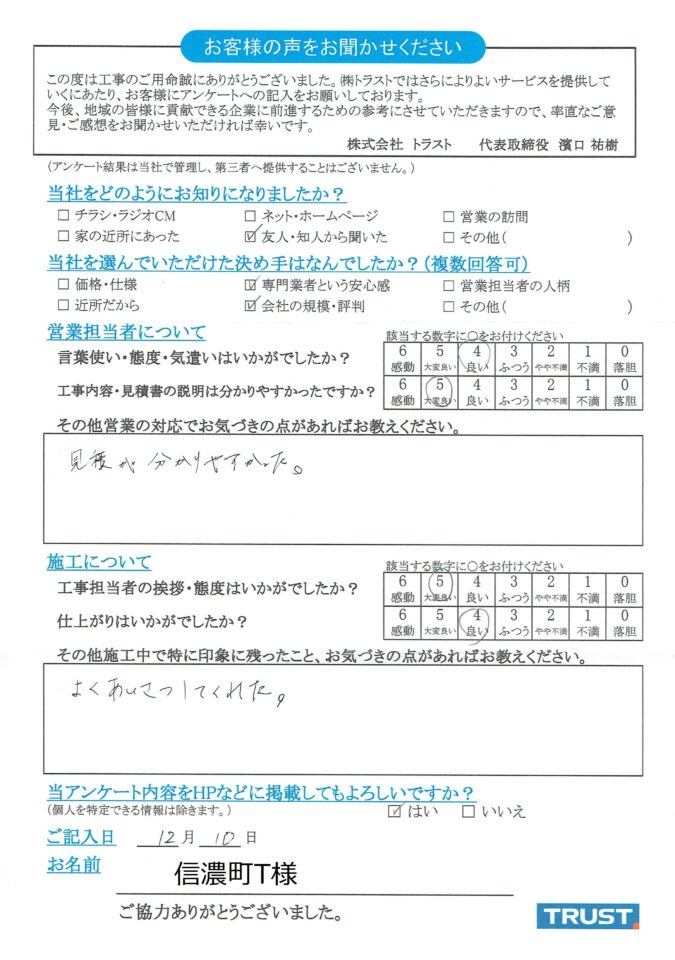 お客様の声をお聞かせください
この度は工事のご用命誠にありがとうございました。㈱トラストではさらによりよいサービスを提供して
いくにあたり、お客様にアンケートへの記入をお願いしております。
今後、地域の皆様に貢献できる企業に前進するための参考にさせていただきますので、率直なご意
見・ご感想をお聞かせいただければ幸いです。
株式会社 トラスト 代表取締役 濱口 祐樹
(アンケート結果は当社で管理し、第三者へ提供することはございません。)
当社をどのようにお知りになりましたか？
☐ チラシ・ラジオCM ☐ ネット・ホームページ ☐ 営業の訪問
☐ 家の近所にあった ☑ 友人・知人から聞いた ☐ その他( )
当社を選んでいただけた決め手はなんでしたか？(複数回答可)
☐ 価格・仕様 ☑ 専門業者という安心感 ☐ 営業担当者の人柄
☐ 近所だから ☑ 会社の規模・評判 ☐ その他( )
営業担当者について
該当する数字に○をお付けください
言葉使い・態度・気遣いはいかがでしたか？
6 5 4 3 2 1 0
感動 大変良い 良い ふつう やや不満 不満 落胆
工事内容・見積書の説明は分かりやすかったですか？
6 5 4 3 2 1 0
感動 大変良い 良い ふつう やや不満 不満 落胆
その他営業の対応でお気づきの点があればお教えください。
見積が分かりやすかった。
施工について
該当する数字に○をお付けください
工事担当者の挨拶・態度はいかがでしたか？
6 5 4 3 2 1 0
感動 大変良い 良い ふつう やや不満 不満 落胆
仕上がりはいかがでしたか？
6 5 4 3 2 1 0
感動 大変良い 良い ふつう やや不満 不満 落胆
その他施工中で特に印象に残ったこと、お気づきの点があればお教えください。
よくあいさつしてくれた。
当アンケート内容をHPなどに掲載してもよろしいですか？
(個人を特定できる情報は除きます。)
☑ はい ☐ いいえ
ご記入日 12月10日
お名前 信濃町T様
ご協力ありがとうございました。
TRUST.